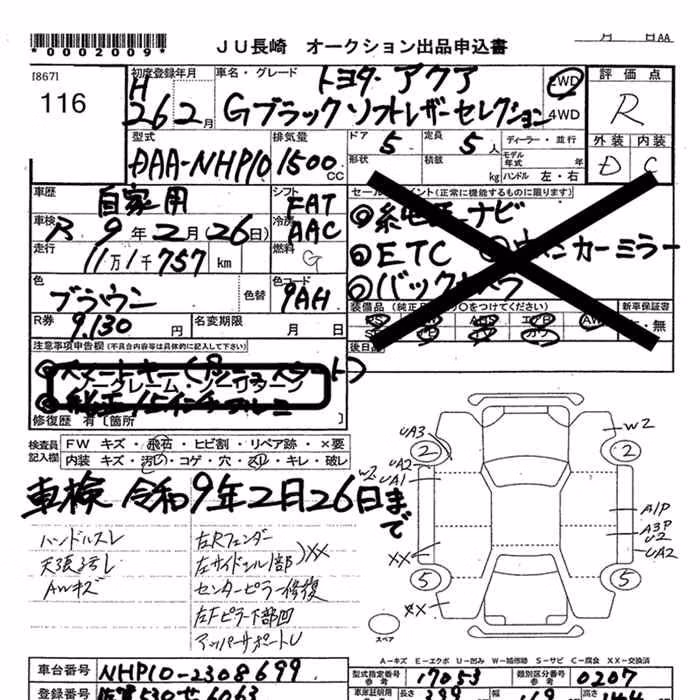 *0002009*
JU長崎 オークション出品申込書
月 日AA
[867]
116
初度登録年月
H
26 2月
車名・グレード
トヨタ アクア
Gブラックソフトレザーセレクション
2WD
4WD
評価点
R
外装 内装
D C
型式
DAA-NHP10
排気量
1500cc
ドア 5
定員 5人
ディーラー・並行
形状
積載 kg
モデル年式 年
ハンドル 左・右
車歴
自家用
シフト
FAT
車検
R 9年2月(26日)
冷房
AAC
走行
11万1千757 km
燃料
G
色
ブラウン
色替
色コード
9AH
R券
9,130円
名変期限 月 日
セールスポイント(正常に機能するものに限ります)
ナビ
◎ETC
カーミラー
◎バックカメラ
新車保証書
・無
後日品
注意事項申告欄(不具合内容等は具体的に記入して下さい)
ノークレーム・ノーリターン
修復歴 有〔箇所 〕
検査員記入欄
FW キズ・飛石・ヒビ割・リペア跡・×要
内装 キズ・汚れ・コゲ・穴・スリ・キレ・破レ
車検 令和9年2月26日まで
ハンドルスレ
天張ヨゴレ
AWキズ
左Rフェンダー
左サイドシル1部 )XX
センターピラー修復
左Fピラー下部凹
アッパーサポートU
UA3
UA2
W2
UA1
XX
XX
W2
A1P
A3P
U2
UA2
2
2
5
5
スペア
A-キズ E-エクボ U-凹み W-補修跡 S-サビ C-腐食 XX-交換済
車台番号
NHP10-2308699
型式指定番号 参考
17053
類別区分番号 参考
0207
長さ 399